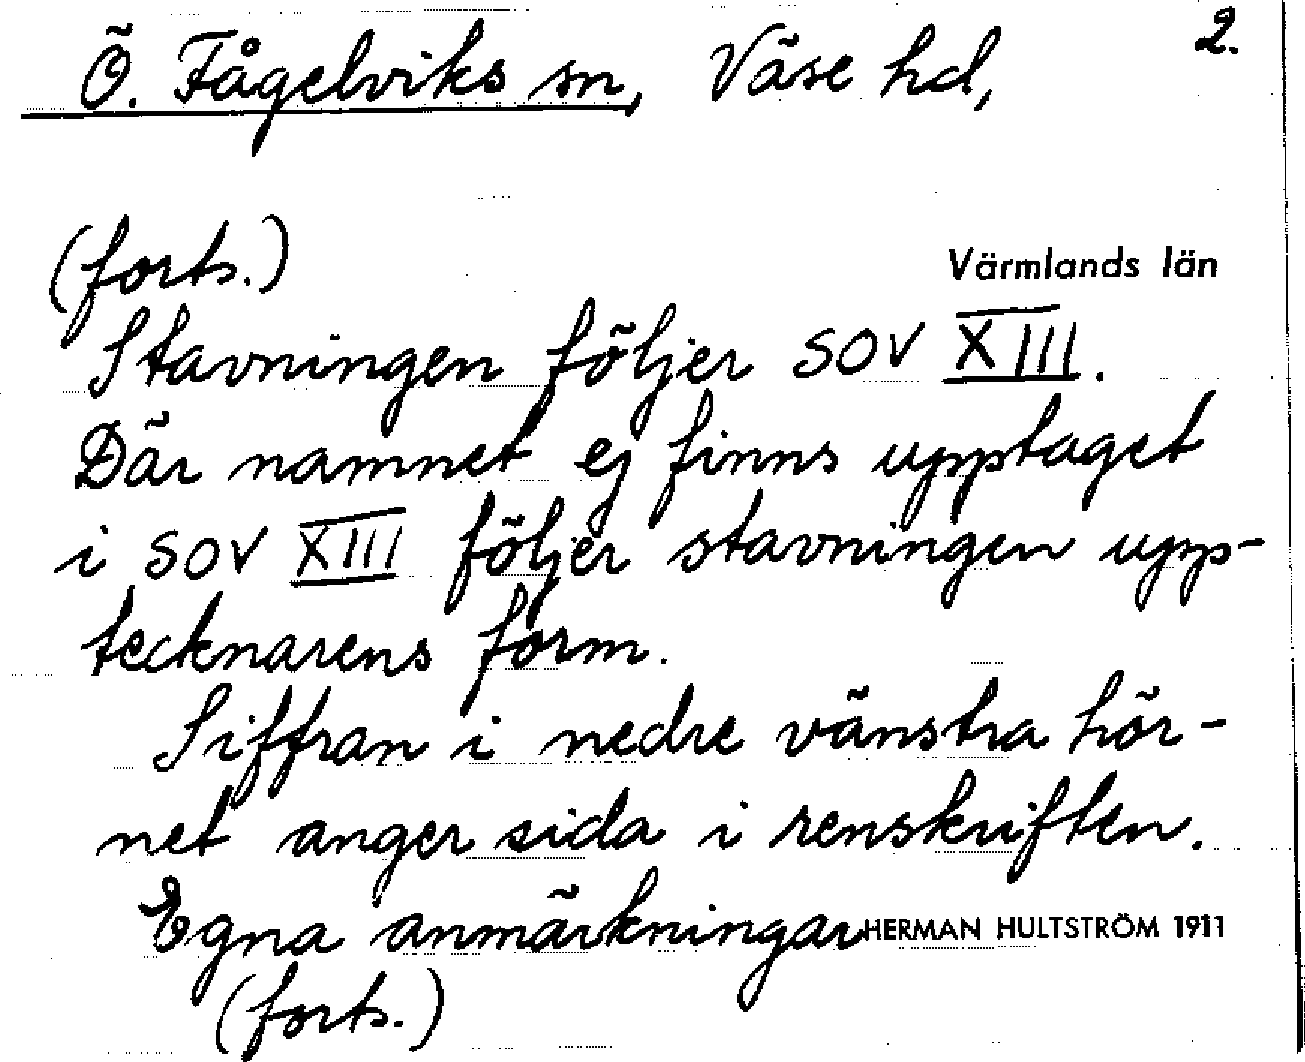 2.
Ö. Fågelviks sn, Väse hd,
(forts.)
Värmlands län
Stavningen följer SOV XIII.
Där namnet ej finns upptaget
i SOV XIII följer stavningen upp-
tecknarens form.
Siffran i nedre vänstra hör-
net anger sida i renskriften.
Egna anmärkningar
HERMAN HULTSTRÖM 1911
(forts.)